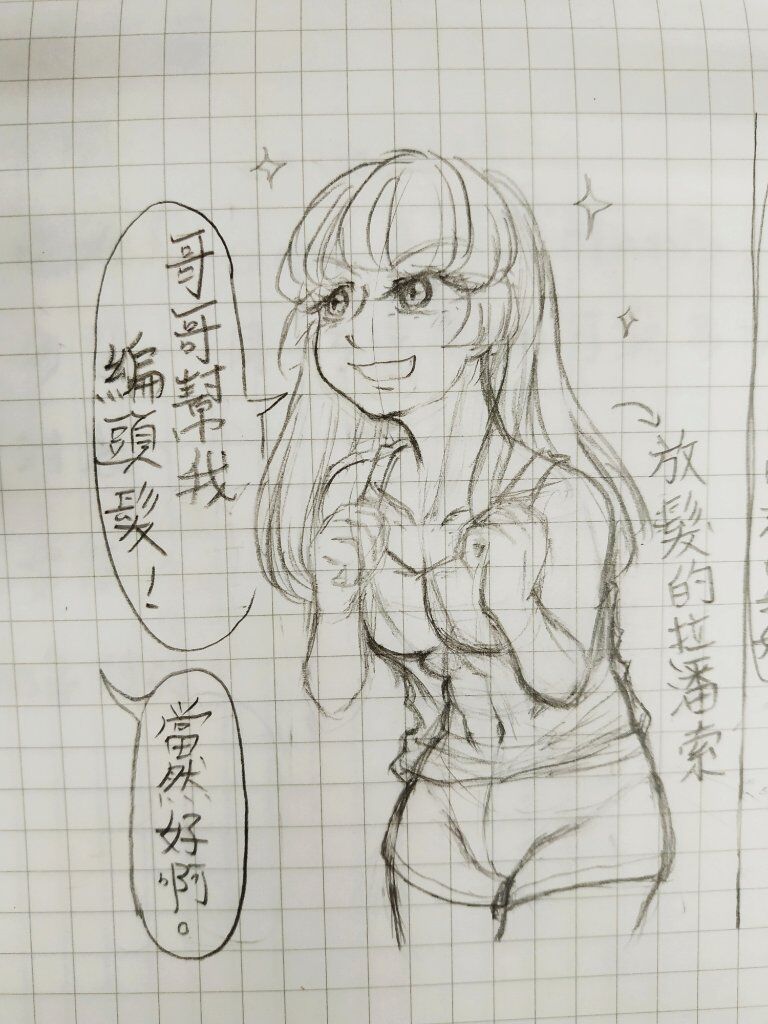 哥哥幫我
編頭髮！
當然好啊。
放髮的拉潘索